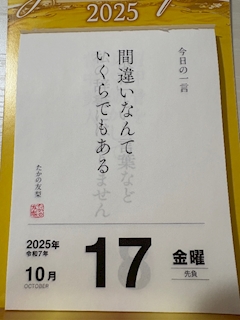 2025
今日の一言
間違いなんて
いくらでもある
たかの友梨
2025年
令和7年
10月
OCTOBER
17
金曜
先負